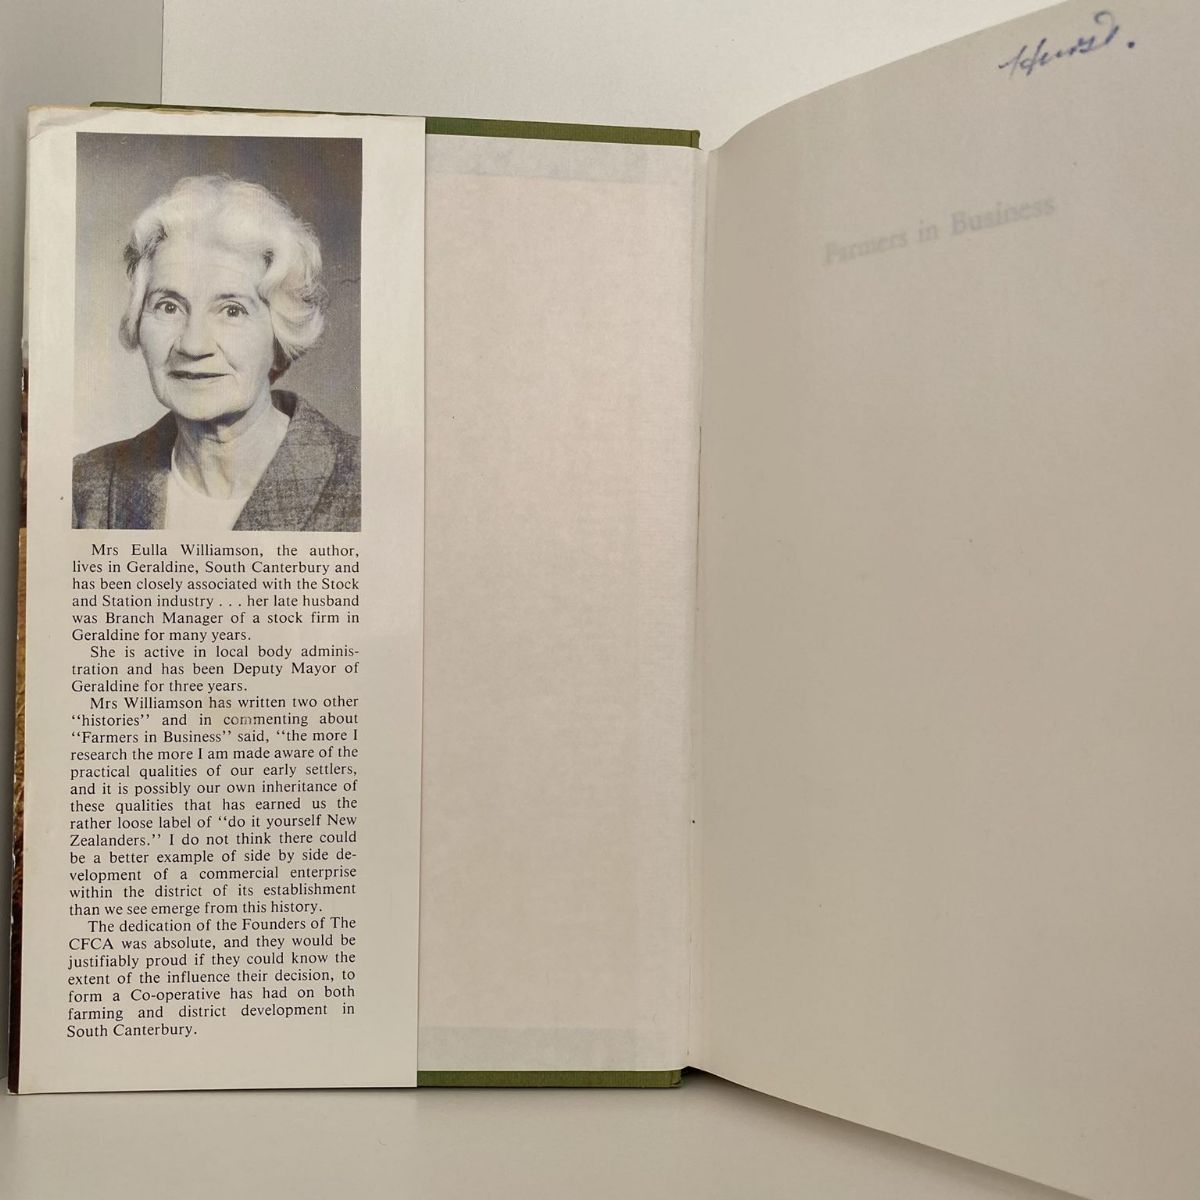 Mrs Eulla Williamson, the author,
lives in Geraldine, South Canterbury and
has been closely associated with the Stock
and Station industry . . . her late husband
was Branch Manager of a stock firm in
Geraldine for many years.
She is active in local body adminis-
tration and has been Deputy Mayor of
Geraldine for three years.
Mrs Williamson has written two other
“histories” and in commenting about
“Farmers in Business” said, “the more I
research the more I am made aware of the
practical qualities of our early settlers,
and it is possibly our own inheritance of
these qualities that has earned us the
rather loose label of “do it yourself New
Zealanders.” I do not think there could
be a better example of side by side de-
velopment of a commercial enterprise
within the district of its establishment
than we see emerge from this history.
The dedication of the Founders of The
CFCA was absolute, and they would be
justifiably proud if they could know the
extent of the influence their decision, to
form a Co-operative has had on both
farming and district development in
South Canterbury.
Farmers in Business